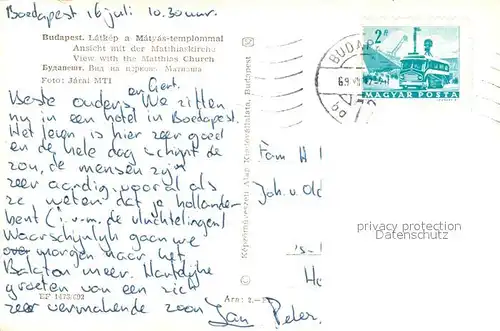 Boedapest 16 juli 10.30 uur.
Budapest. Látkép a Mátyás-templommal
Ansicht mit der Matthiaskirche
View with the Matthias Church
Будапешт. Вид на церковь Матиаша
Foto: Járai MTI
en Gert.
Beste ouders, We zitten
nu in een hotel in Boedapest.
Het leven is hier zeer goed
en de hele dag schijnt de
zon, de mensen zijn
zeer aardig, vooral als
ze weten dat je hollander
bent (i.v.m. de vluchtelingen)
Waarschijnlijk gaan we
morgen naar het
Balaton meer. Hartelijke
groeten van een zich
zeer vermakende zoon Jan Peter.
EF 1473/692
Ára: 2.- F
Képzőművészeti Alap Kiadóvállalata, Budapest
BUDAP
69
2 Ft
MAGYAR POSTA
Fam H
Joh. v. Old
privacy protection
Datenschutz